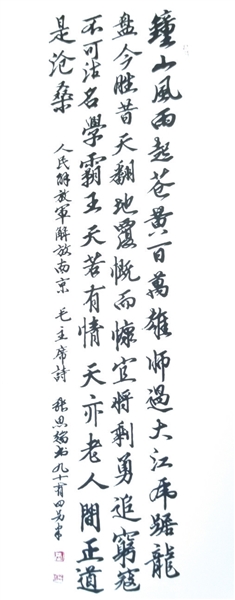 鐘山風雨起蒼黄百萬雄師過大江虎踞龍
盤今胜昔天翻地覆慨而慷宜將剩勇追窮寇
不可沽名學霸王天若有情天亦老人間正道
是滄桑 人民解放軍解放南京 毛主席詩 九十有四